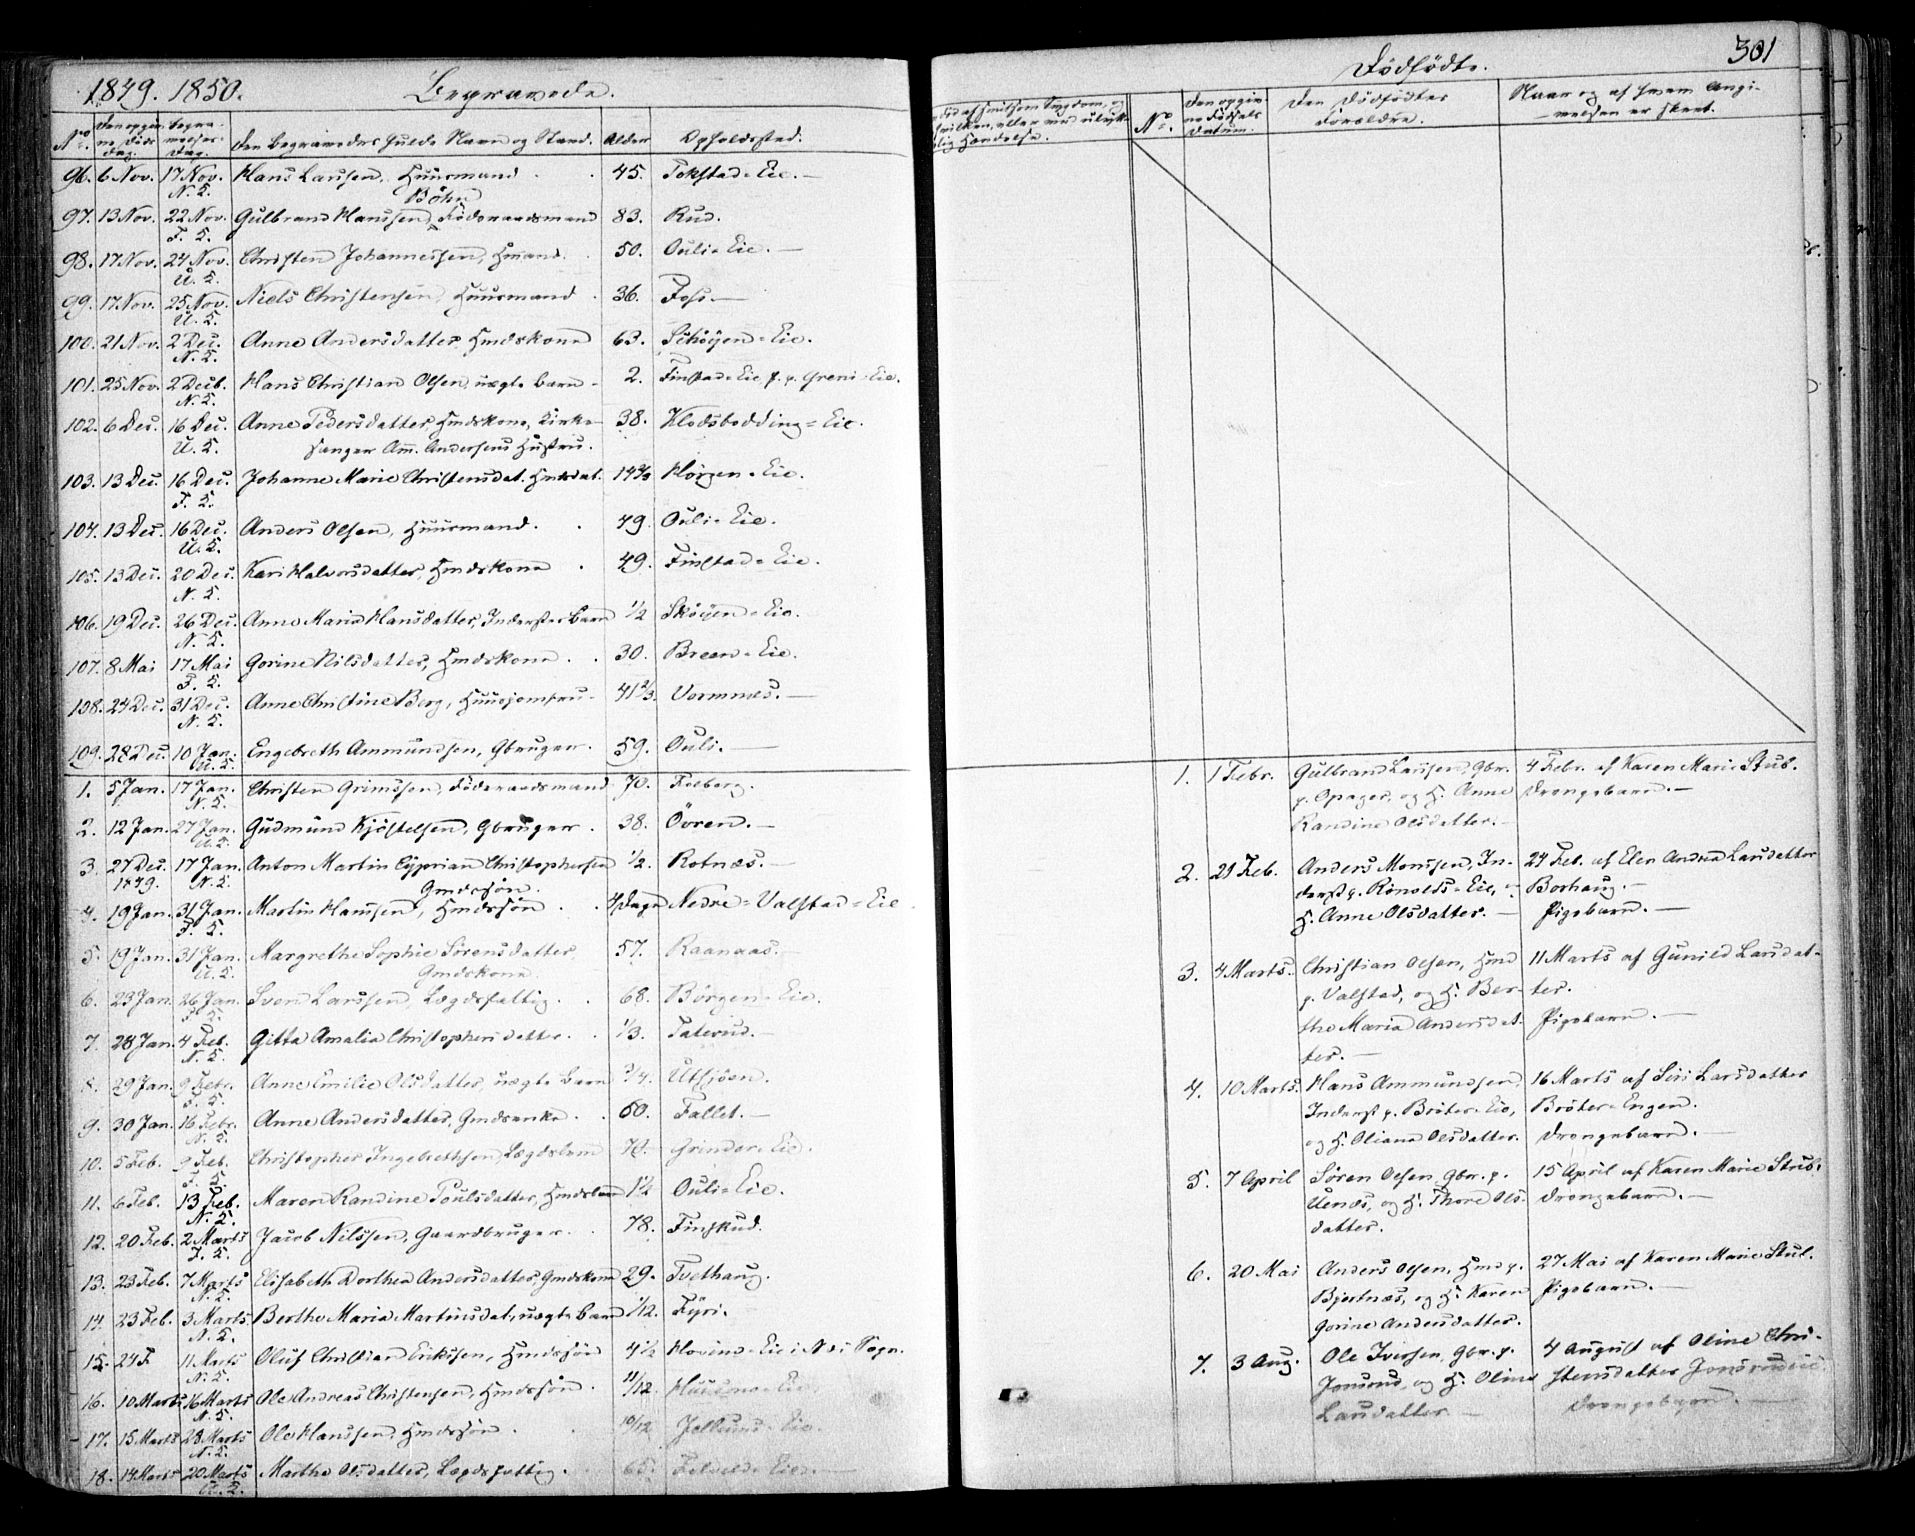 1849. 1850. Begravede.
No. Den opgivne Døds Dag. Begravelses Dag. Den Begravedes fulde Navn og Stand. Alder Opholdssted.
96. 6 Nov. 17 Nov. N. K. Hans Larssen, Huusmand 45. Tokstad=Eie.
Böhn
97. 13 Nov. 22 Nov. F. K. Gulbrand Hanssen, Föderaadsmand 83. Rud.
98. 17 Nov. 24 Nov. U. K. Christen Johannessen, Hmand. 50. Ouli=Eie.
99. 17 Nov. 25 Nov. U. K. Niels Christensen, Huusmand 36. Foss.
100. 21 Nov. 2 Dec. N. K. Anne Andersdatter, Hmdskone 63. Schöyen=Eie.
101. 25 Nov. 2 Decb. N. K. Hans Christian Olsen, uægte Barn 2. Finstad=Eie f. p. Greni=Eie.
102. 6 Dec. 16 Dec. U. K. Anne Pedersdatter, Hmdskone, Kirke- 38. Klodsbodding=Eie.
sanger Am. Andersens Hustru.
103. 13 Dec. 16 Dec. F. K. Johanne Marie Christensdat. Hmdsdat. 14¾ Hörgen=Eie.
104. 13 Dec. 16 Dec. U. K. Anders Olsen, Huusmand. 49. Ouli=Eie.
105. 13 Dec. 20 Dec. N. K. Kari Halvorsdatter, Hmdskone 49. Finstad=Eie.
106. 19 Dec. 26 Dec. N. K. Anne Maria Hansdatter, Inderstes Barn 1/2 Sköyen=Eie.
107. 8 Mai 17 Mai F. K. Gorine Nilsdatter, Hmdskone 30. Breen=Eie.
108. 24 Dec. 31 Dec. N. K. Anne Christine Berg, Huusjomfru 41 2/3. Vormnæs.
109. 28 Dec. 10 Jan. U. K. Engebreth Ammundsen, Gbruger. 59. Ouli.
1. 5 Jan. 17 Jan. N. K. Christen Grimssen, Föderaadsmand 70. Foeberg.
2. 12 Jan. 27 Jan. U. K. Gudmund Kjöstelsen, Gbruger. 38. Ovren.
3. 27 Dec. 1849. 17 Jan. N. K. Anton Martin Cyprian Christophersen 1/2. Rotnæs.
Gmdssön.
4. 19 Jan. 31 Jan. F. K. Martin Hanssen, Hmdssön 4 Dage Nedre=Valstad=Eie
5. 19 Jan. 31 Jan. U. K. Margrethe Sophie Sörensdatter, 57. Raanaas.
Gmdskone
6. 23 Jan. 26 Jan. F. K. Sven Larssen, Lægdsfattig. 68. Börgen=Eie.
7. 28 Jan. 4 Feb. N. K. Gitta Amalia Christophersdatter. 1/3. Taterud.
8. 29 Jan. 9 Febr. F. K. Anne Emilie Olsdatter, uægte Barn 3/4. Utsjöen.
9. 30 Jan. 16 Febr. N. K. Anne Andersdatter, Gmdsenke. 60. Fallet.
10. 5 Feb. 9 Feb. F. K. Christopher Ingebrethsen, Lægdslem 70. Grinder=Eie.
11. 6 Feb. 13 Feb. N. K. Maren Randine Poulsdatter, Hmdsbarn 1½ Ouli=Eie.
12. 20 Feb. 2 Marts F. K. Jacob Nilssen, Gaardbruger. 78. Finskud.
13. 23 Feb. 7 Marts N. K. Elisabeth Dorthea Andersdatter, Gmdskone 29. Tvethaug.
14. 23 Feb. 3 Marts. N. K. Berthe Maria Martinsdat, uægte Barn 1/12. Fyri.
15. 24 F. 11 Marts N. K. Oluf Christian Erikssen, Hmdssön 4½ Hovind=Eie i Næs Sogn.
16. 10 Marts 16 Marts N. K. Ole Andreas Christensen, Hmdssön. 11/12.
17. 15 Marts 28 Marts N. K. Ole Hanssen, Hmdssön 10/12
18. 14 Marts 20 Marts U. K. Marthe Olsdatter, Lægdsfattig. 65.
Dödfödte. 301
No. Den opgivne Fødsels Datum. Den Dödfödtes Forældre. Naar og af hvem Angi-
melsen er skeet.
1. 1 Febr. Gulbrand Larssen, Gbr. 4 Febr. af Karen Marie Stub.
p. Opager, og H. Anne Drengebarn.
Randine Olsdatter.
2. 21 Feb. Anders Monssen, In- 24 Feb. af Elen Andrea Larsdatter
derst p. Rönolds=Eie, og Borhaug.
H. Anne Olsdatter. Pigebarn.
3. 4 Marts. Christian Olsen, Hmd 11 Marts af Gunild Larsdat-
p. Valstad, og H. Ber- ter.
the Maria Andersdat- Pigebarn.
ter.
4. 10 Marts. Hans Ammundsen, 16 Marts af Siri Larsdatter
Inderst p. Bröter=Eie, Bröter=Engen.
og H. Oliana Olsdatter. Drengebarn.
5. 7 April Sören Olsen, Gbr. p. 15 April af Karen Marie Stub.
Uenæs, og H. Thore Ols- Drengebarn.
datter.
6. 20 Mai Anders Olsen, Hmd p. 27 Mai af Karen Marie Stub.
Bjertnæs, og H. Karen Pigebarn.
Gorine Andersdatter.
7. 3 Aug. Ole Iversen, Gbr. p. 4 August af Oline Chri-
Jonsrud, og H. Oline stensdatter Jonsrudeie
Larsdatter Drengebarn.